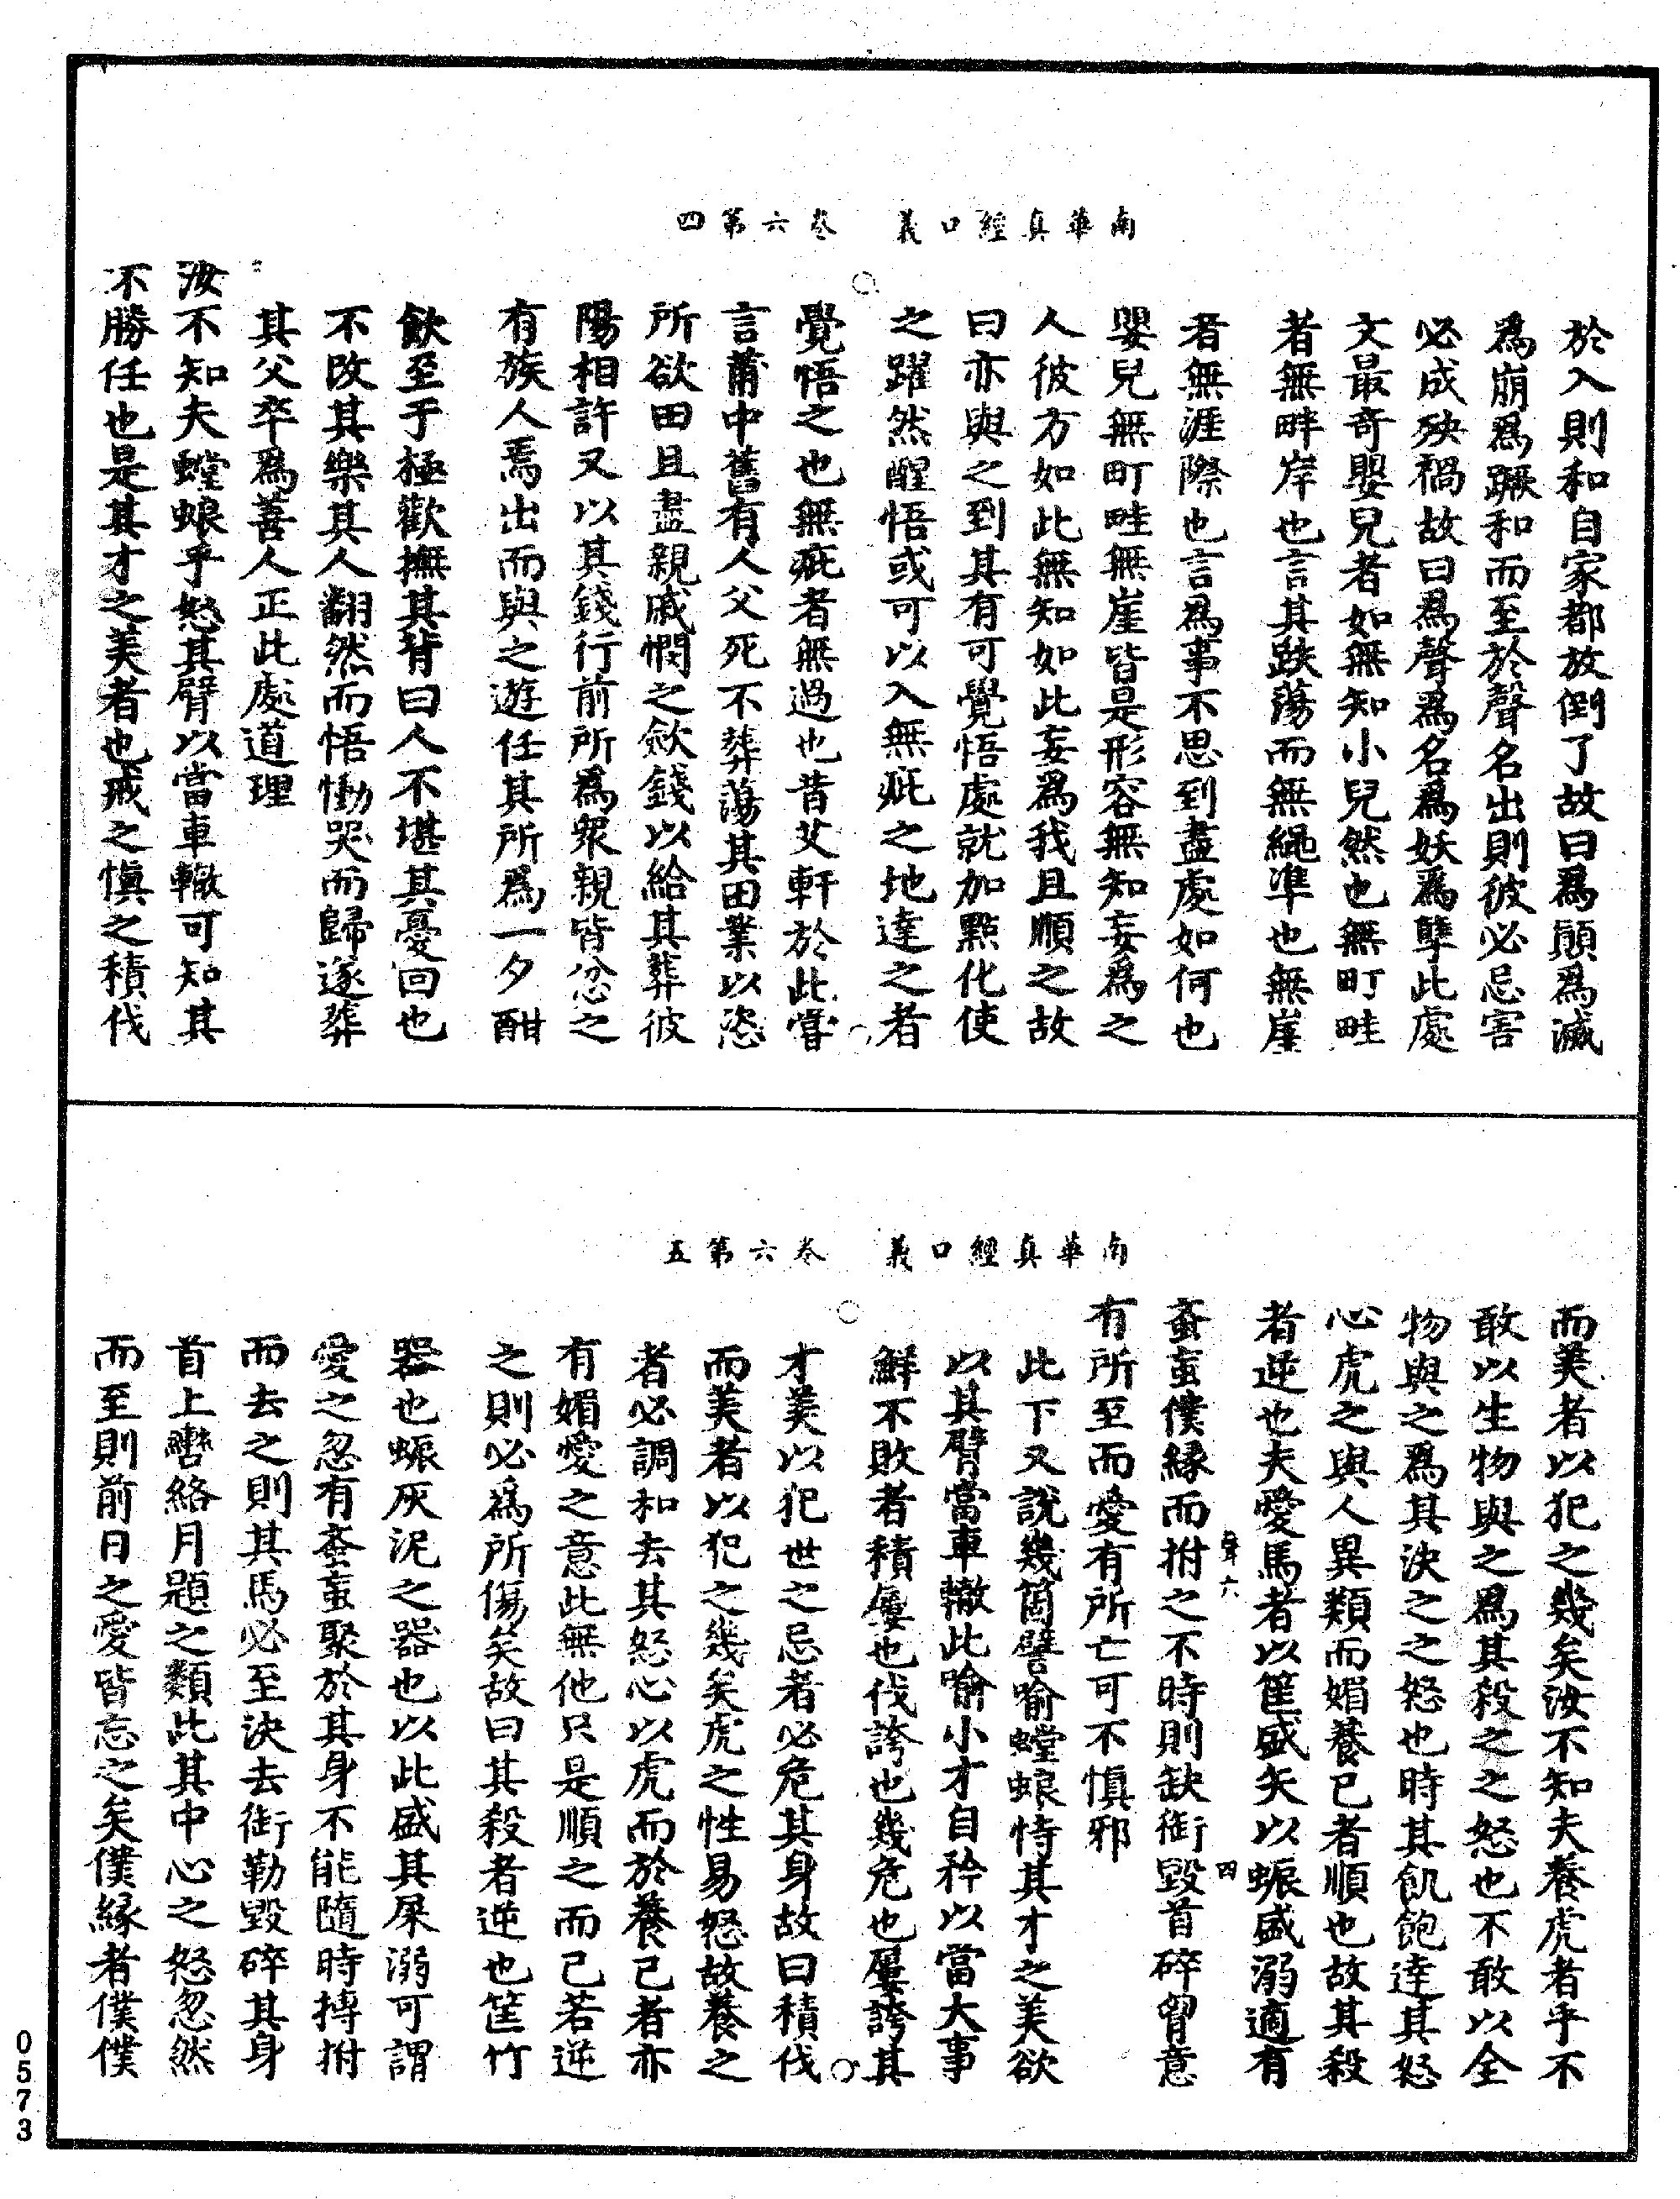 南華真經口義　卷六第四
於入則和自家都放倒了故曰爲顛爲滅
爲崩爲蹶和而至於聲名出則彼必忌害
必成殃禍故曰爲聲爲名爲妖爲孽此處
文最奇嬰兒者如無知小兒然也無町畦
者無畔岸也言其跌蕩而無繩準也無崖
者無涯際也言爲事不思到盡處如何也
嬰兒無町畦無崖皆是形容無知妄爲之
人彼方如此無知如此妄爲我且順之故
曰亦與之到其有可覺悟處就加點化使
之躍然醒悟或可以入無疵之地達之者
覺悟之也無疵者無過也昔艾軒於此嘗
言莆中舊有人父死不葬蕩其田業以恣
所欲田且盡親戚憫之斂錢以給其葬彼
陽相許又以其錢行前所爲衆親皆忿之
有族人焉出而與之遊任其所爲一夕酣
飲至于極歡撫其背曰人不堪其憂回也
不改其樂其人翻然而悟慟哭而歸遂葬
其父卒爲善人正此處道理
汝不知夫螳蜋乎怒其臂以當車轍可知其
不勝任也是其才之美者也戒之慎之積伐
南華真經口義　卷六第五
而美者以犯之幾矣汝不知夫養虎者乎不
敢以生物與之爲其殺之之怒也不敢以全
物與之爲其決之之怒也時其飢飽達其怒
心虎之與人異類而媚養已者順也故其殺
者逆也夫愛馬者以筐盛矢以蜄盛溺適有
蚉䖟僕緣而拊之不時則缺銜毀首碎胷意
有所至而愛有所亡可不慎邪
此下又說幾箇譬喻螳蜋恃其才之美欲
以其臂當車轍此喻小才自矜以當大事
鮮不敗者積屢也伐誇也幾危也屢誇其
才美以犯世之忌者必危其身故曰積伐
而美者以犯之幾矣虎之性易怒故養之
者必調和去其怒心以虎而於養已者亦
有媚愛之意此無他只是順之而已若逆
之則必爲所傷矣故曰其殺者逆也筐竹
器也蜄灰泥之器也以此盛其屎溺可謂
愛之忽有蚉䖟聚於其身不能隨時搏拊
而去之則其馬必至決去銜勒毀碎其身
首上轡絡月題之類此其中心之怒忽然
而至則前日之愛皆忘之矣僕緣者僕僕
0573